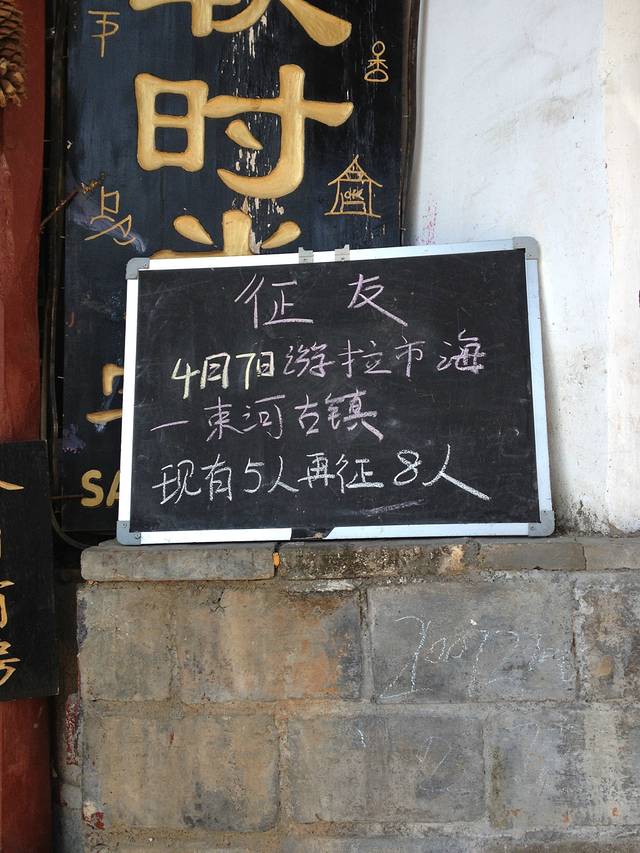 时
征友
4月7日游拉市海
一束河古镇
现有5人再征8人
SA